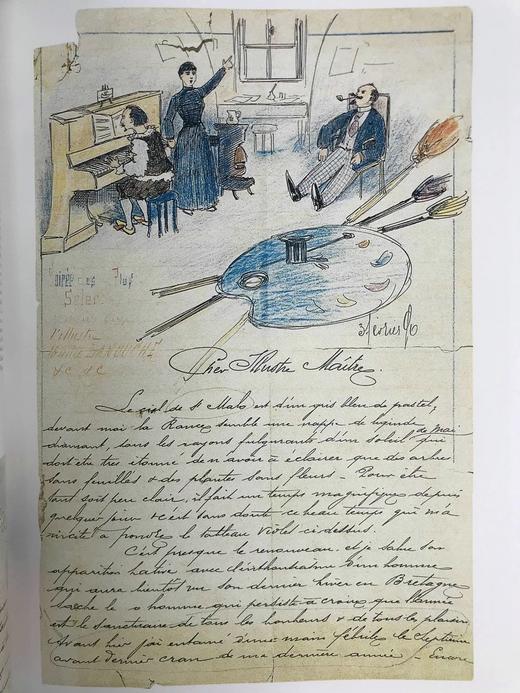 Soirée des Plus
Sélec
l'illustre
&c &c
3 février 96
Cher Illustre Maître.
Le ciel de St Malo est d'un gris bleu de pastel,
devant moi la Rance semble une nappe de
diamant, sous les rayons fulgurants d'un soleil qui
doit être très étonné de n'avoir à éclairer que des arbres
sans feuilles & des plantes sans fleurs — Pour être
tant soit peu clair, il fait un temps magnifique depuis
quelques jours & c'est sans doute ce beau temps qui m'a
incité à pondre le tableau violet ci dessus.
C'est presque le renouveau et je salue son
apparition hative avec l'enthousiasme d'un homme
qui aura bientôt vu son dernier hiver en Bretagne
le homme qui persiste à croire que l'armée
est le sanctuaire de tous les honneurs & de tous les plaisirs
Avant hier j'ai entamé d'une main fébrile le septième
avant dernier cran de ma dernière année — Encore